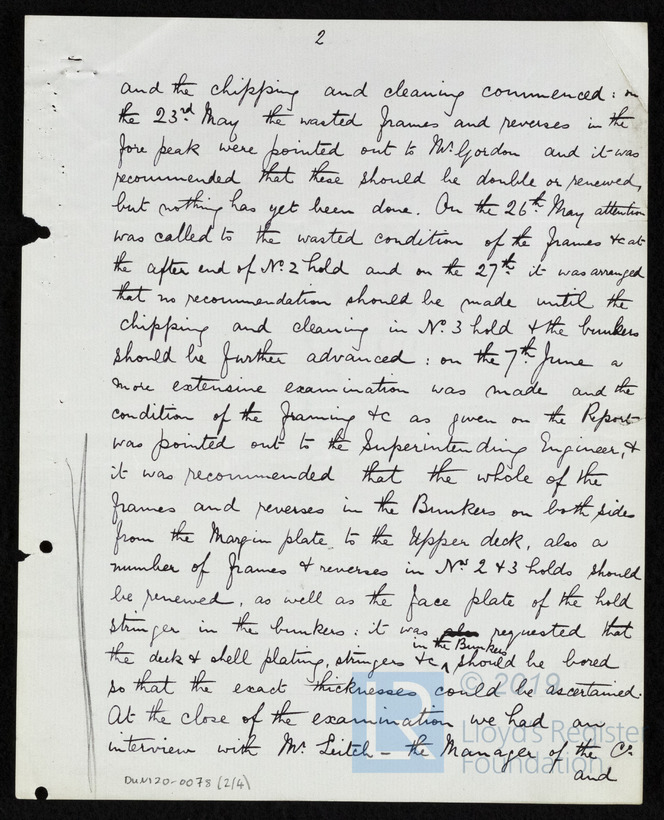 2
and the chipping and cleaning commenced: on
the 23rd May the wasted frames and reverses in the
fore peak were pointed out to Mr. Gordon and it was
recommended that these should be double or renewed,
but nothing has yet been done. On the 26th May attention
was called to the wasted condition of the frames &c at
the after end of No. 2 hold and on the 27th it was arranged
that no recommendation should be made until the
chipping and cleaning in No. 3 hold & the bunkers
should be further advanced: on the 7th June a
more extensive examination was made and the
condition of the framing &c as given on the Report
was pointed out to the Superintending Engineer, &
it was recommended that the whole of the
frames and reverses in the Bunkers on both sides
from the Margin plate to the Upper deck, also a
number of frames & reverses in Nos 2 & 3 holds should
be renewed, as well as the face plate of the hold
stringer in the bunkers: it was also requested that
in the Bunkers
the deck & shell plating, stringers &c ^ should be bored
so that the exact thicknesses could be ascertained.
At the close of the examination we had an
interview with Mr. Leitch - the Manager of the Co.
and
DUN120-0078 (2/4)
LR
© 2019
Lloyd's Register
Foundation